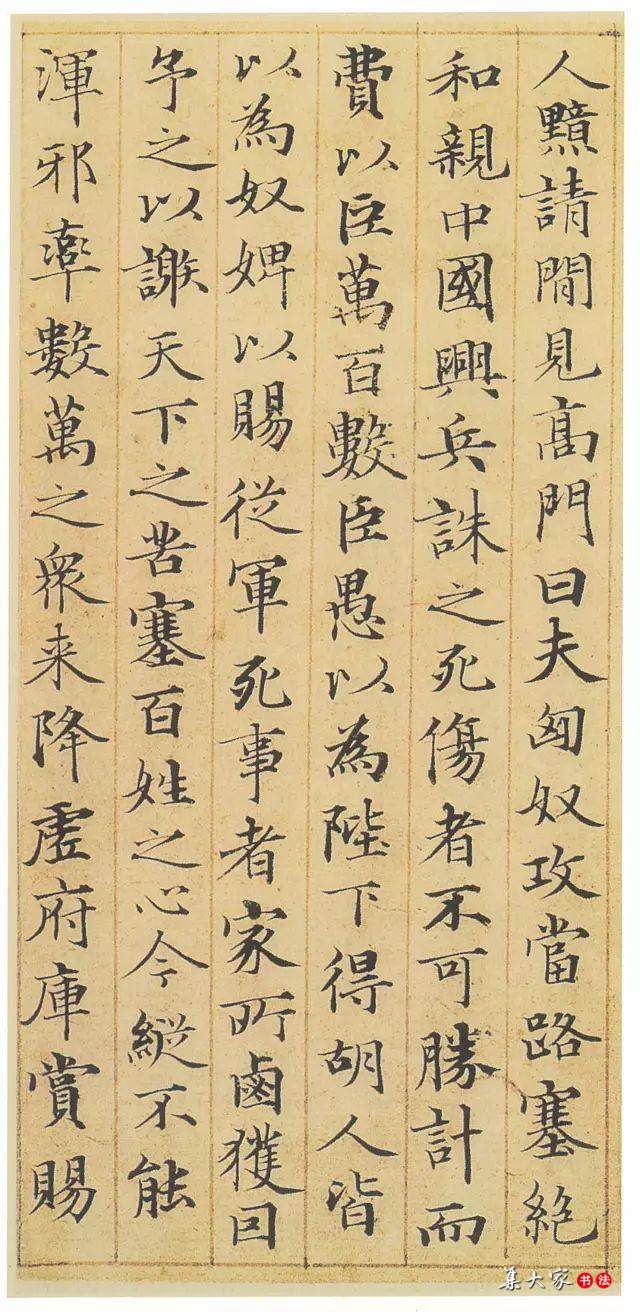 人黯請閒見高門曰夫匈奴攻當路塞絶
和親中國興兵誅之死傷者不可勝計而
費以巨萬百數臣愚以為陛下得胡人皆
以為奴婢以賜從軍死事者家所鹵獲因
予之以謝天下之苦塞百姓之心今縱不能
渾邪率數萬之衆来降虚府庫賞賜
集大家书法